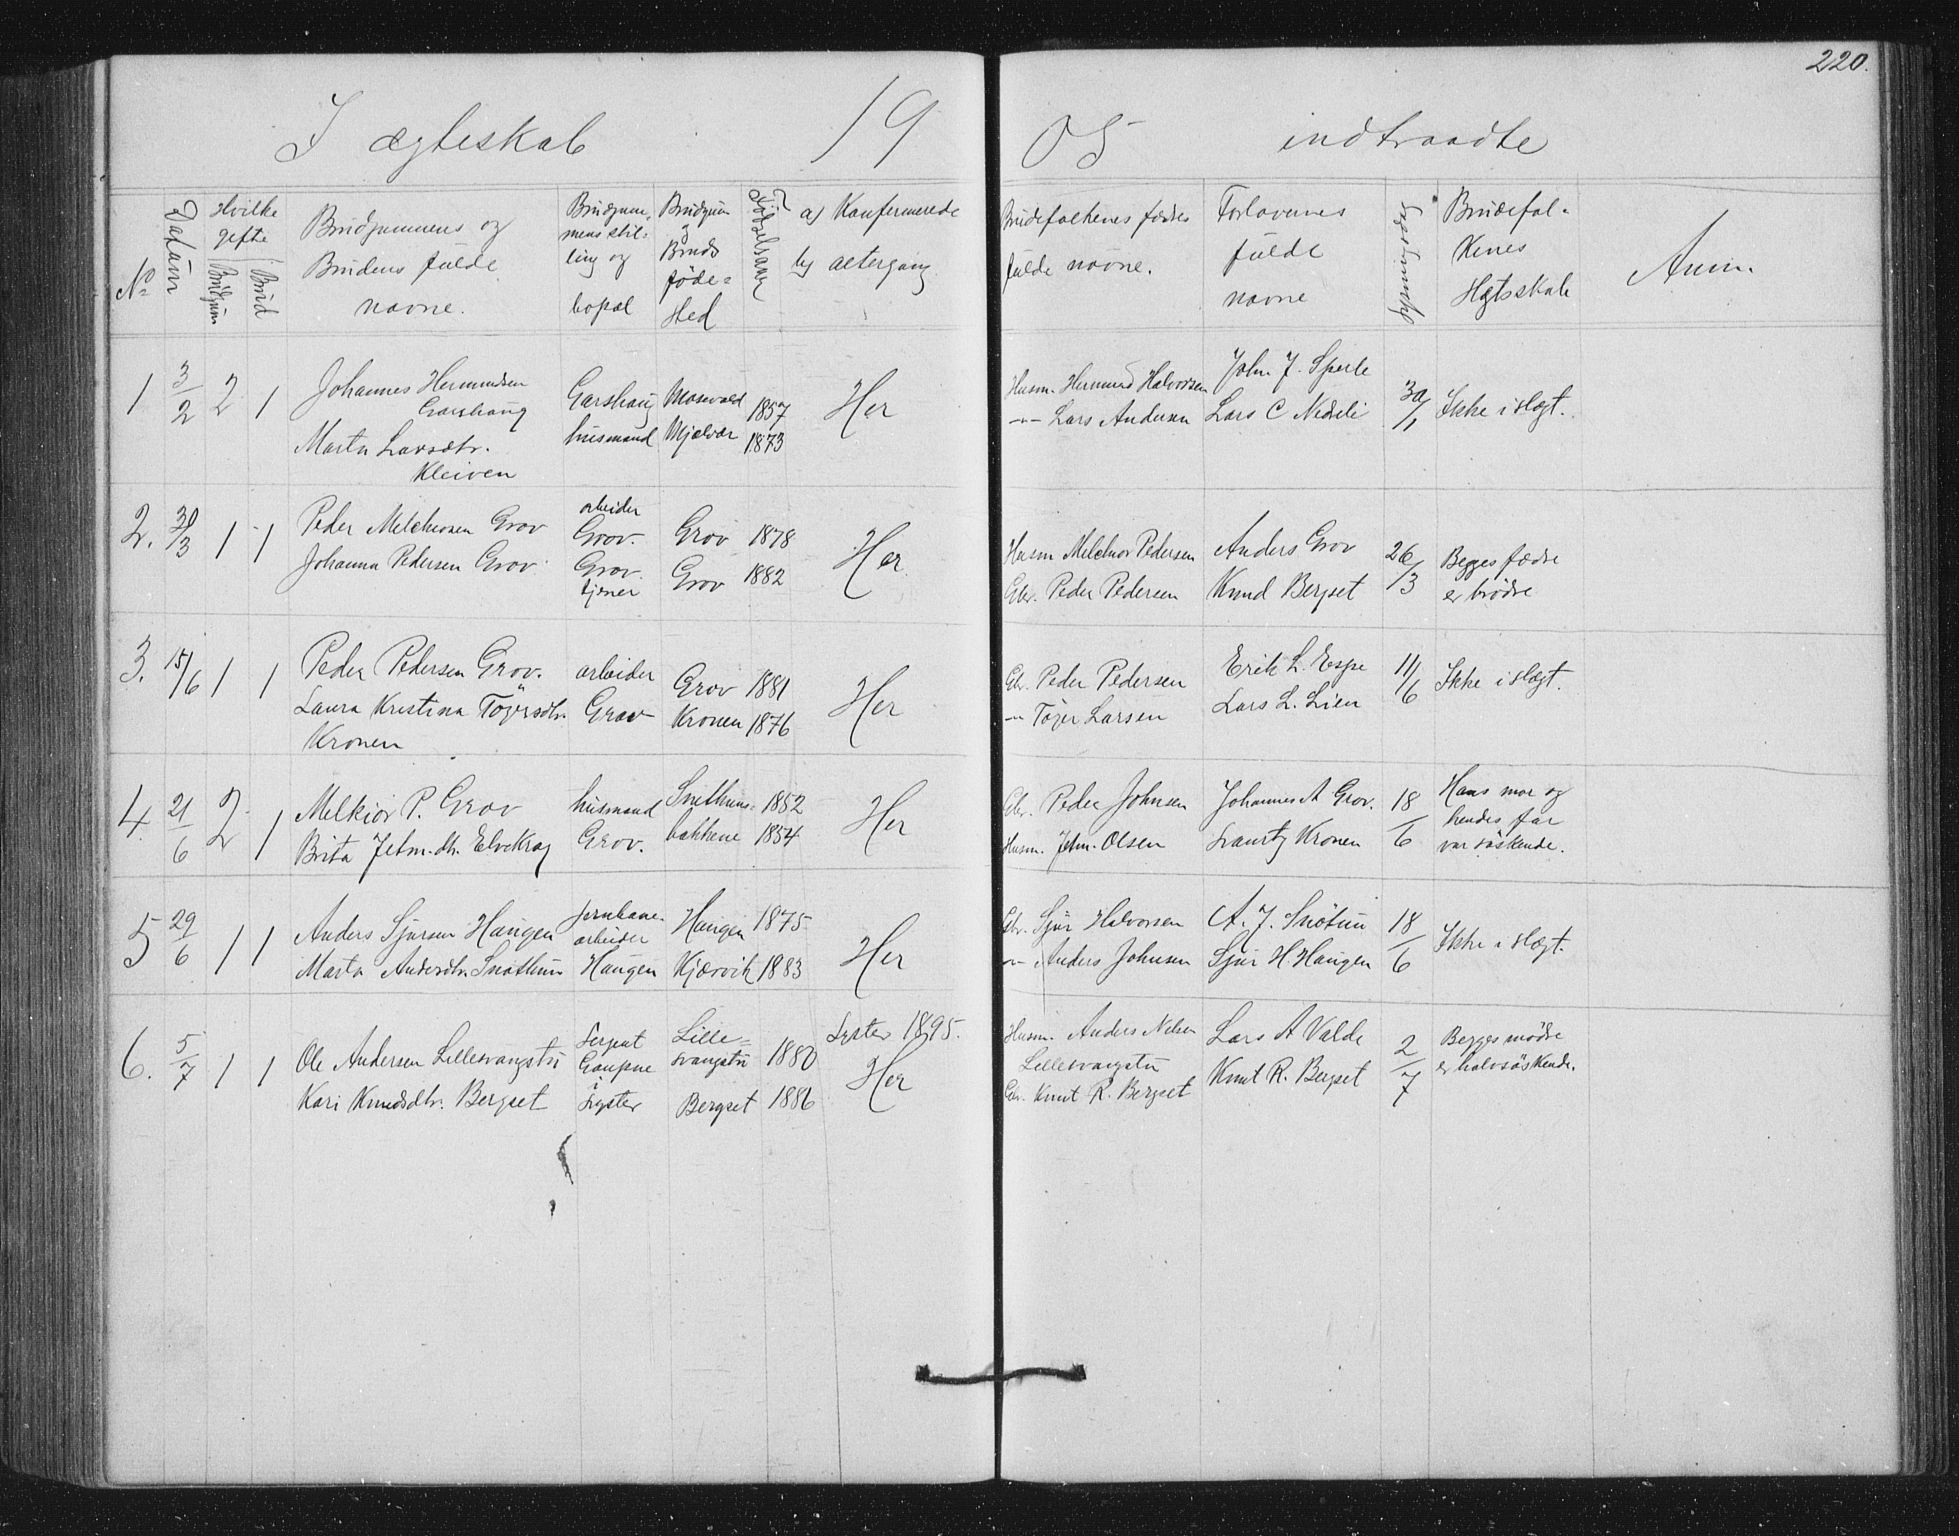 220.
I ægteskab 1905 indtraadte
No
Datum
Hvilke gifte
Brudgum
Brud
Brudgummens og
Brudens fulde
navne.
Brudgum-
mens stil-
ling og
bopæl
Brudgum
og
Bruds
føde-
sted
Fødselsaar
a) Konfirmerede
b) altergang
Brudefolkenes fædres
fulde navne.
Forlovernes
fulde
navne
Brudefol-
kenes
Slgtsskab
Anm.
1 3/2 2 1
Johannes Hermundsen
Garshaug
Marta Larsdtr.
Kleiven
Garshaug
husmand
Mosvold
Mjelvær
1857
1873
Her
Husm. Hermund Halvorsen
-"- Lars Andersen
John J. Sperle
Lars C Nedreli
30/1
Ikke i slægt.
2. 30/3 1 1
Peder Melchiorsen Grov
Johanna Pedersen Grov
arbeider
Grov.
Grov.
tjener
Grov
Grov
1878
1882
Her
Husm Melchior Pedersen
Gbr. Peder Pedersen
Anders Grov
Knud Bergset
26/3
Begges fædre
er brødre
3. 15/6 1 1
Peder Pedersen Grov.
Laura Kristina Tøgersdtr.
Kronen
arbeider
Grov
Grov
Kronen
1881
1876
Her
Gbr. Peder Pedersen
-"- Tøger Larsen
Erik L. Espe
Lars L. Lien
11/6
Ikke i slægt.
4. 21/6 2 1
Melkior P. Grov
Brita Jetm.dtr. Elvekrag
husmand
Grov.
Snethuns-
bakkene
1852
1854
Her
Gbr. Peder Johnsen
Husm. Jetm. Olsen
Johannes A Grov.
Kronen
18/6
Hans mor og
hendes far
var søskende.
5 29/6 1 1
Anders Sjursen Haugen
Marta Andersdtr. Snøthun
Jernbane-
arbeider
Haugen
Haugen
Kjærvik
1875
1883
Her
Gbr. Sjur Halvorsen
-"- Anders Johnsen
A. J. Snøtun
Sjur H. Haugen
18/6
Ikke i slægt.
6. 5/7 1 1
Ole Andersen Lillesvangstu
Kari Knudsdtr. Bergset
Sergent
Gaupne
i
Lyster
Lille-
svangstu
Bergset
1880
1886
Lyster 1895.
Her
Husm. Anders Nilsen
Lillesvangstu
Gbr. Knut R. Bergset
Lars A Valde
Knut R. Bergset
2/7
Begges mødre
er halvsøskende.